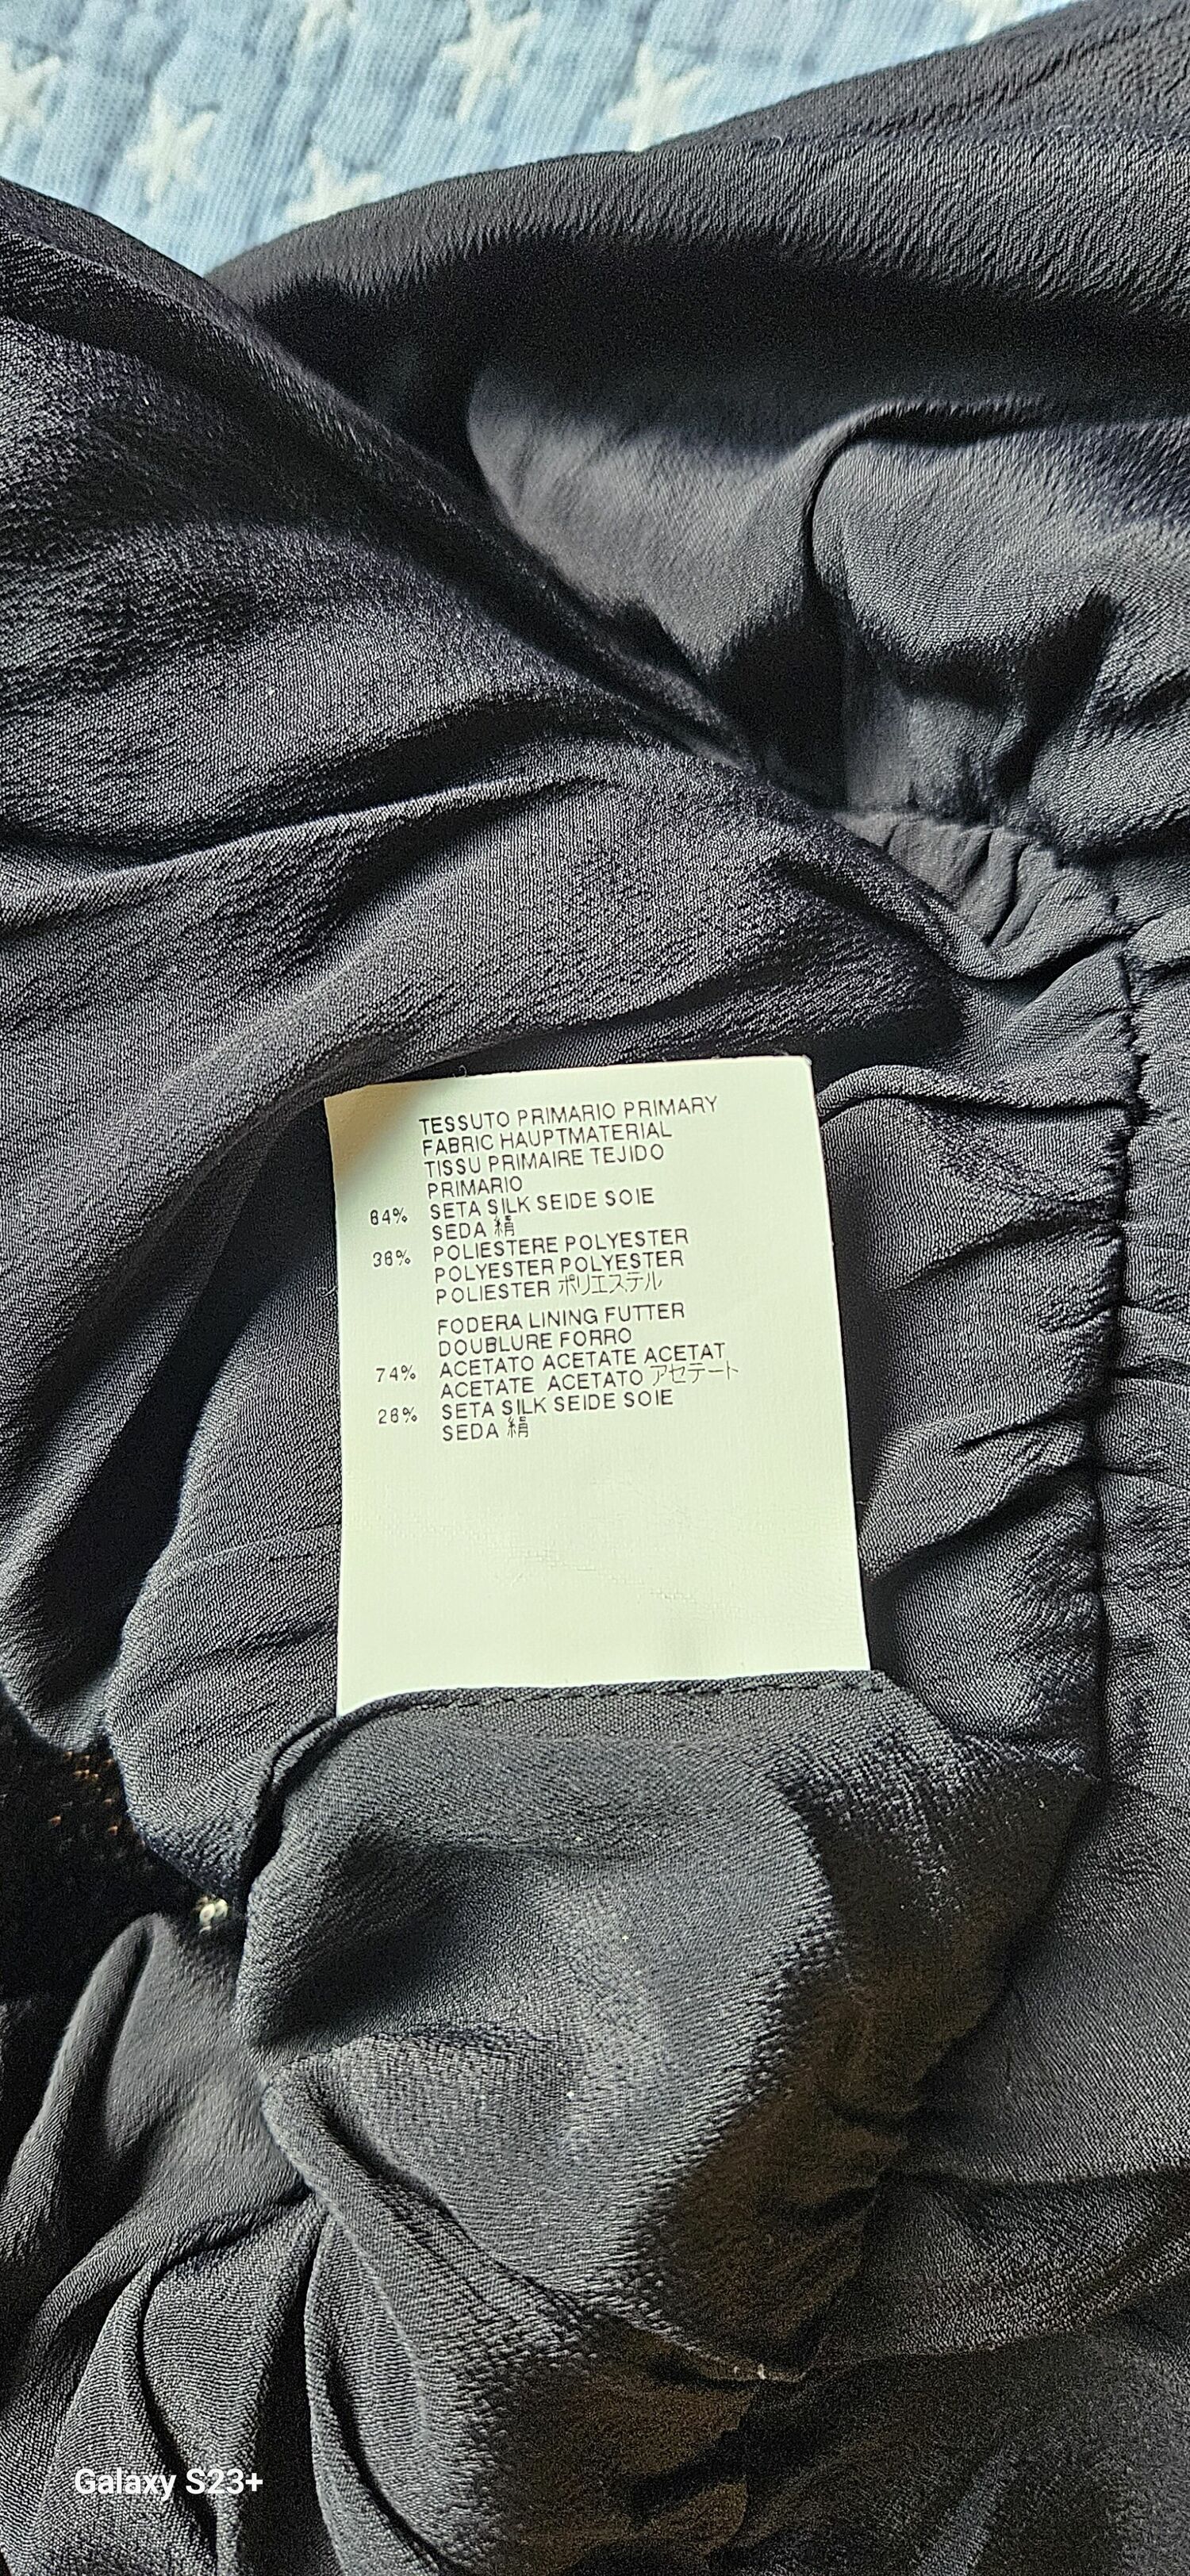 TESSUTO PRIMARIO PRIMARY
FABRIC HAUPTMATERIAL
TISSU PRIMAIRE TEJIDO
PRIMARIO
64% SETA SILK SEIDE SOIE
SEDA 絹
36% POLIESTERE POLYESTER
POLYESTER POLYESTER
POLIESTER ポリエステル
FODERA LINING FUTTER
DOUBLURE FORRO
74% ACETATO ACETATE ACETAT
ACETATE ACETATO アセテート
26% SETA SILK SEIDE SOIE
SEDA 絹
Galaxy S23+